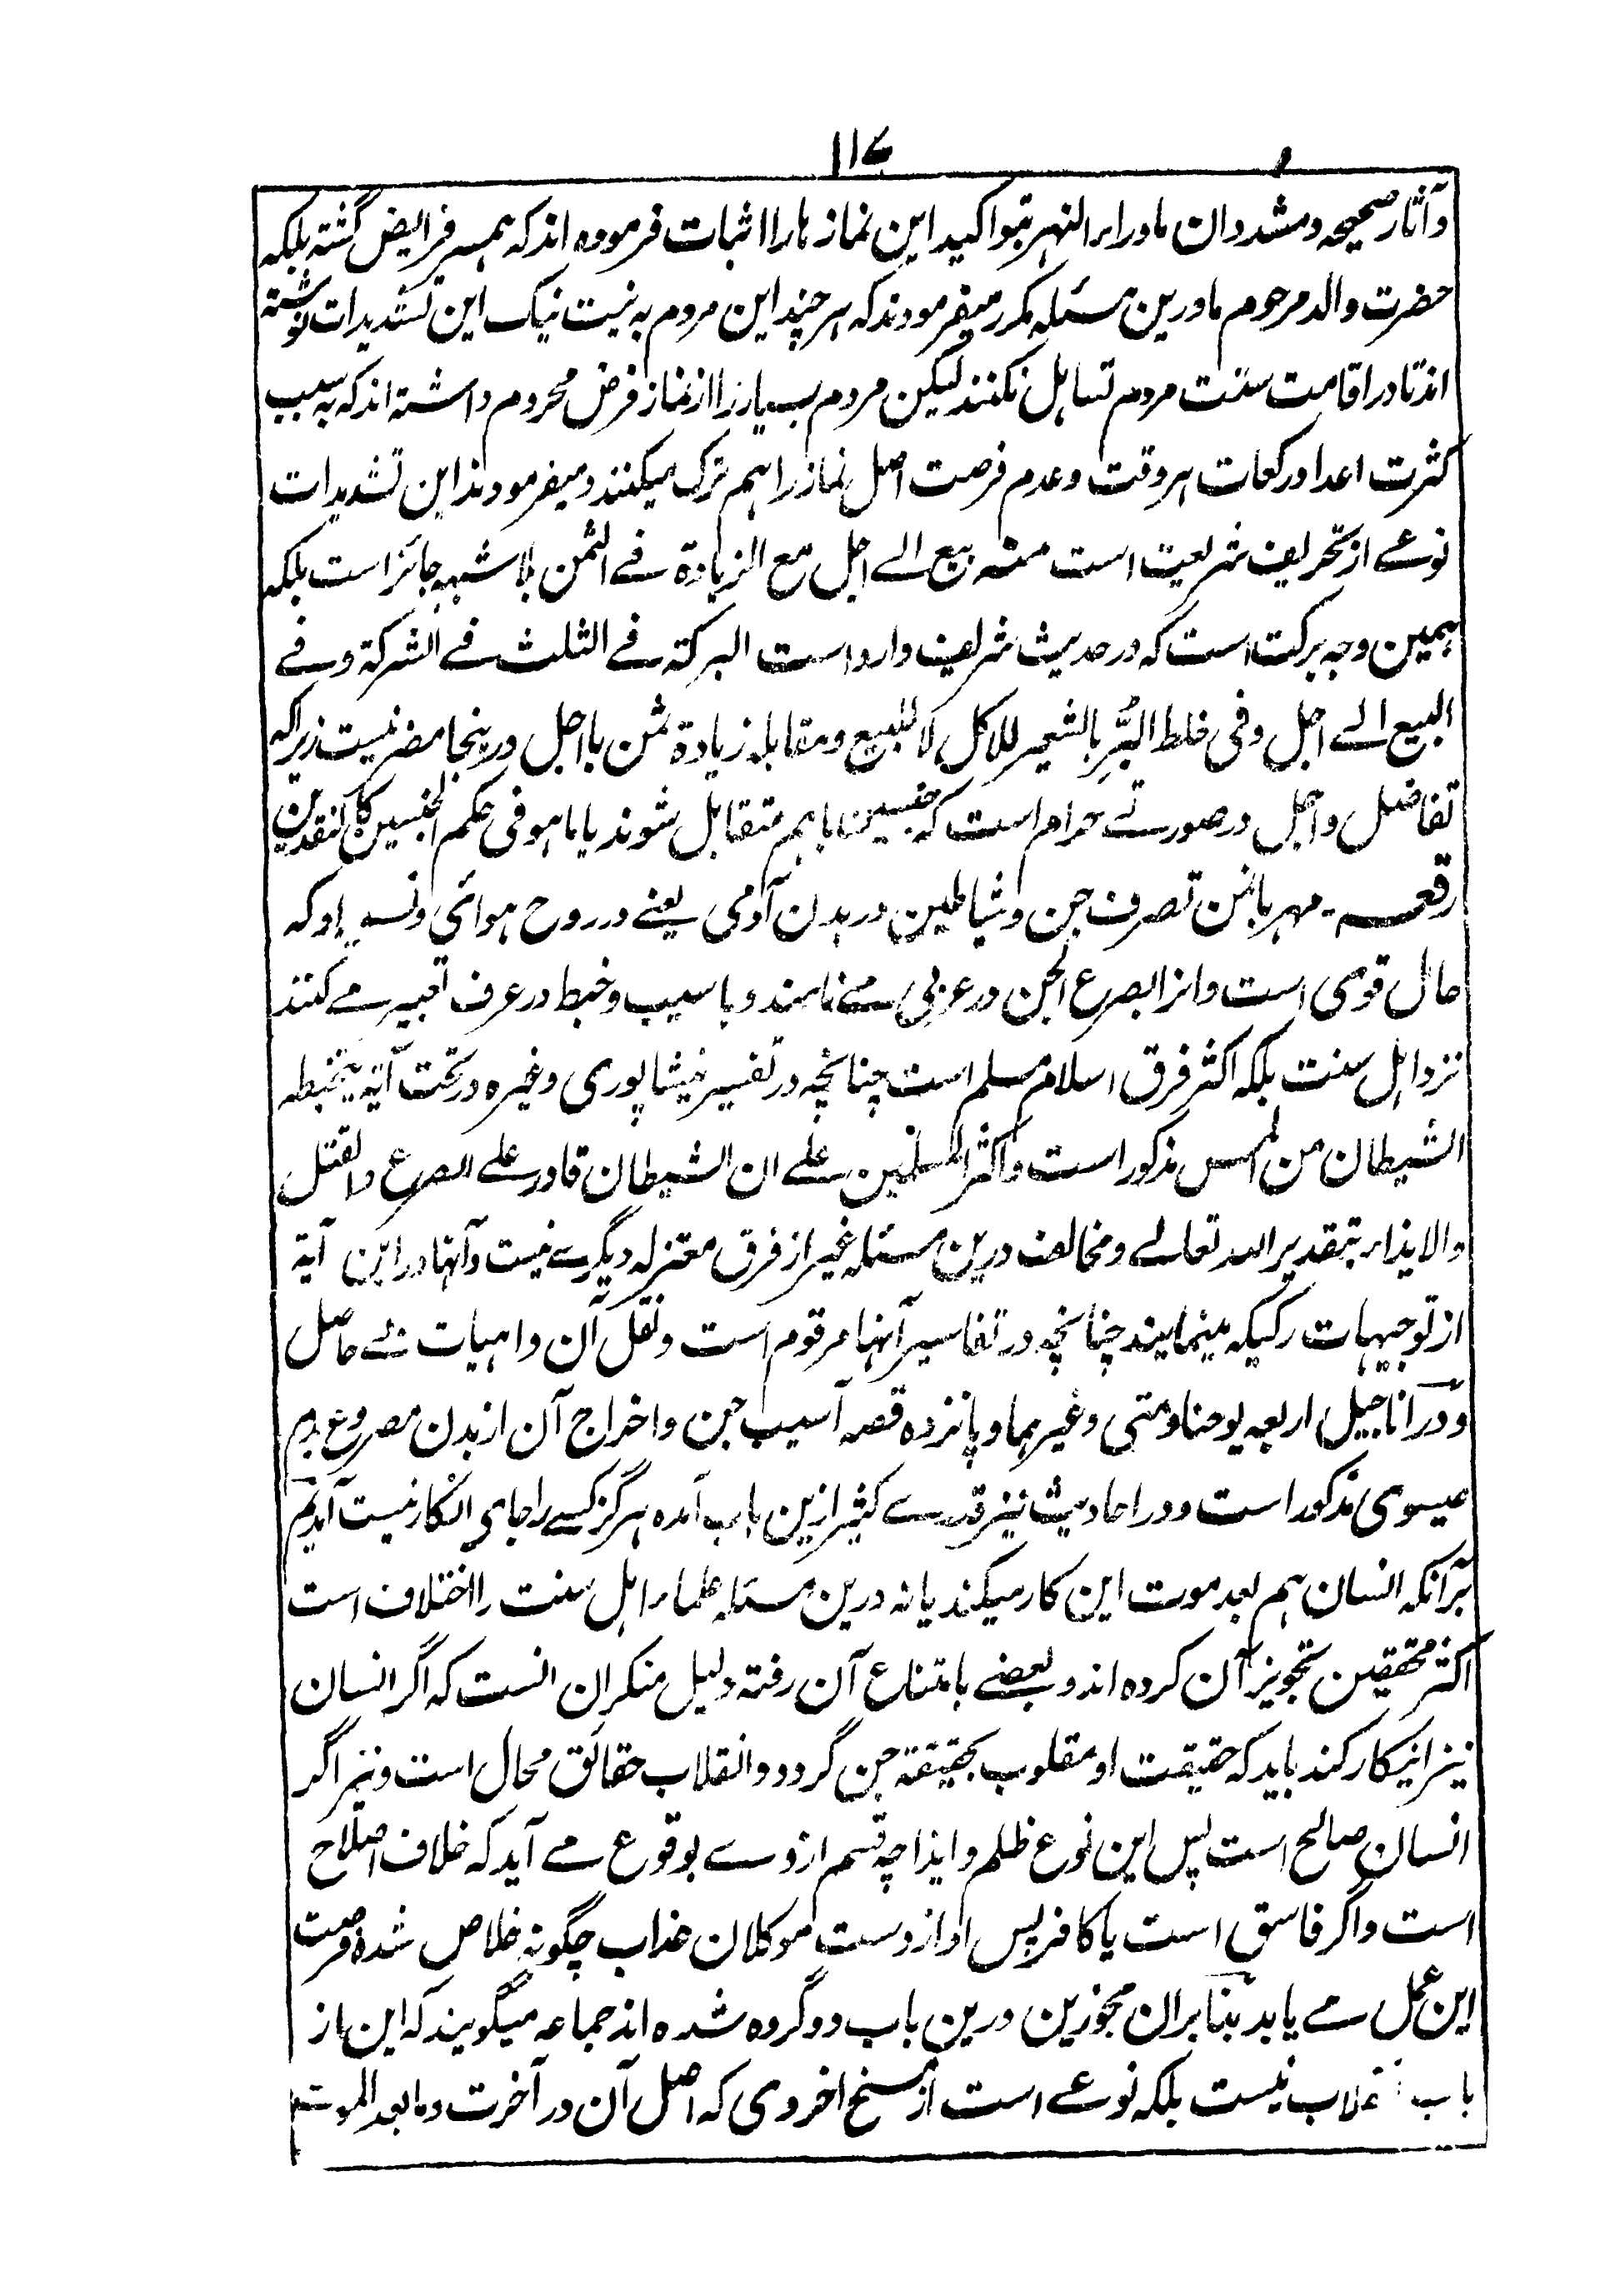 ۱۱۷
وآثار صحیحه و مشددان ماوراء النهر بتواکید این نماز ها را اثبات فرموده اند که همسر فرایض گشته بلکه
حضرت والد مرحوم ما درین مسئله مکرر میفرمودند که هر چند این مردم به نیت نیک این تشدیدات نوشته
اند تا در اقامت سنت مردم تساهل نکنند لیکن مردم بسیار را از نماز فرض محروم داشته اند که به سبب
کثرت اعداد رکعات هر وقت و عدم فرصت اصل نماز را هم ترک میکنند و میفرمودند این تشدیدات
نوعے از تحریف شریعت است مسئله بیع الے اجل مع الزیادة فے الثمن بلا شبهه جائز است بلکه
همین وجه برکت است که در حدیث شریف وارد است البرکة فے الثلث فے الشرکة و فے
البیع الے اجل وفی خلط البُرِّ بالشعیر للاکل لا للبیع و مقابله زیادة ثمن با اجل درینجا مضر نیست زیراکه
تفاضل و اجل در صورتے حرام است که جنسین باهم متقابل شوند یا ماهو فی حکم الجنسین کالنقدین
رقعه - مهربان من تصرف جن و شیاطین در بدن آدمی یعنے در روح هوائی و نسمه او که
حال قوی است و انرا بصرع الجن در عربی مے نامند و باسیب و خبط در عرف تعبیر مے کنند
نزد اهل سنت بلکه اکثر فرق اسلام مسلم است چنانچه در تفسیر نیشاپوری و غیره در تحت آیه یتخبطه
الشیطان من المس مذکور است و اکثر المسلمین علے ان الشیطان قادر علے الصرع و القتل
والایذاء بتقدیر الله تعالے و مخالف درین مسئله غیر از فرق معتزله دیگرے نیست و آنها در این آیة
از توجیهات رکیکه مینمایند چنانچه در تفاسیر آنها مرقوم است و نقل آن واهیات نے حاصل
و در اناجیل اربعه یوحنا و متی و غیرهما و پانزده قصه آسیب جن و اخراج آن از بدن مصروع بدم
عیسوی مذکور است و در احادیث نیز قدرے کثیر ازین باب آمده هرگز کسے را جاے انکار نیست آمدیم
برآنکه انسان هم بعد موت این کار میکند یا نه درین مسئله علماء اهل سنت را اختلاف است
اکثر محققین تجویز آن کرده اند و بعضے بامتناع آن رفته دلیل منکران انست که اگر انسان
نیز اینکار کند باید که حقیقت او مقلوب بحقیقة جن گردد و انقلاب حقائق محال است و نیز اگر
انسان صالح است پس این نوع ظلم و ایذا چه قسم ازوے بوقوع مے آید که خلاف اصلاح
است و اگر فاسق است یا کافر پس او از دست موکلان عذاب چگونه خلاص شده فرصت
این عمل مے یابد بنا بران مجوزین درین باب دو گروه شده اند جماعه میگویند که این از
باب انقلاب نیست بلکه نوعے است از مسخ اخروی که اصل آن در آخرت و ما بعد الموت